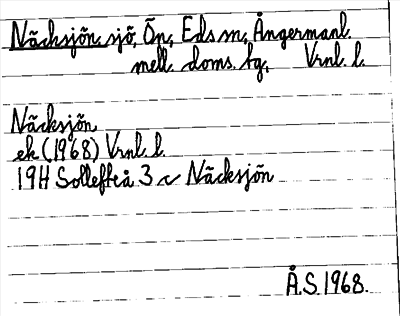 Näcksjön, sjö, Ön, Eds sn, Ångermanl.
mell. doms. tg, Vrnl. l.
Näcksjön
ek (1968) Vrnl. l.
19H Sollefteå 3 c Näcksjön
Å.S. 1968.